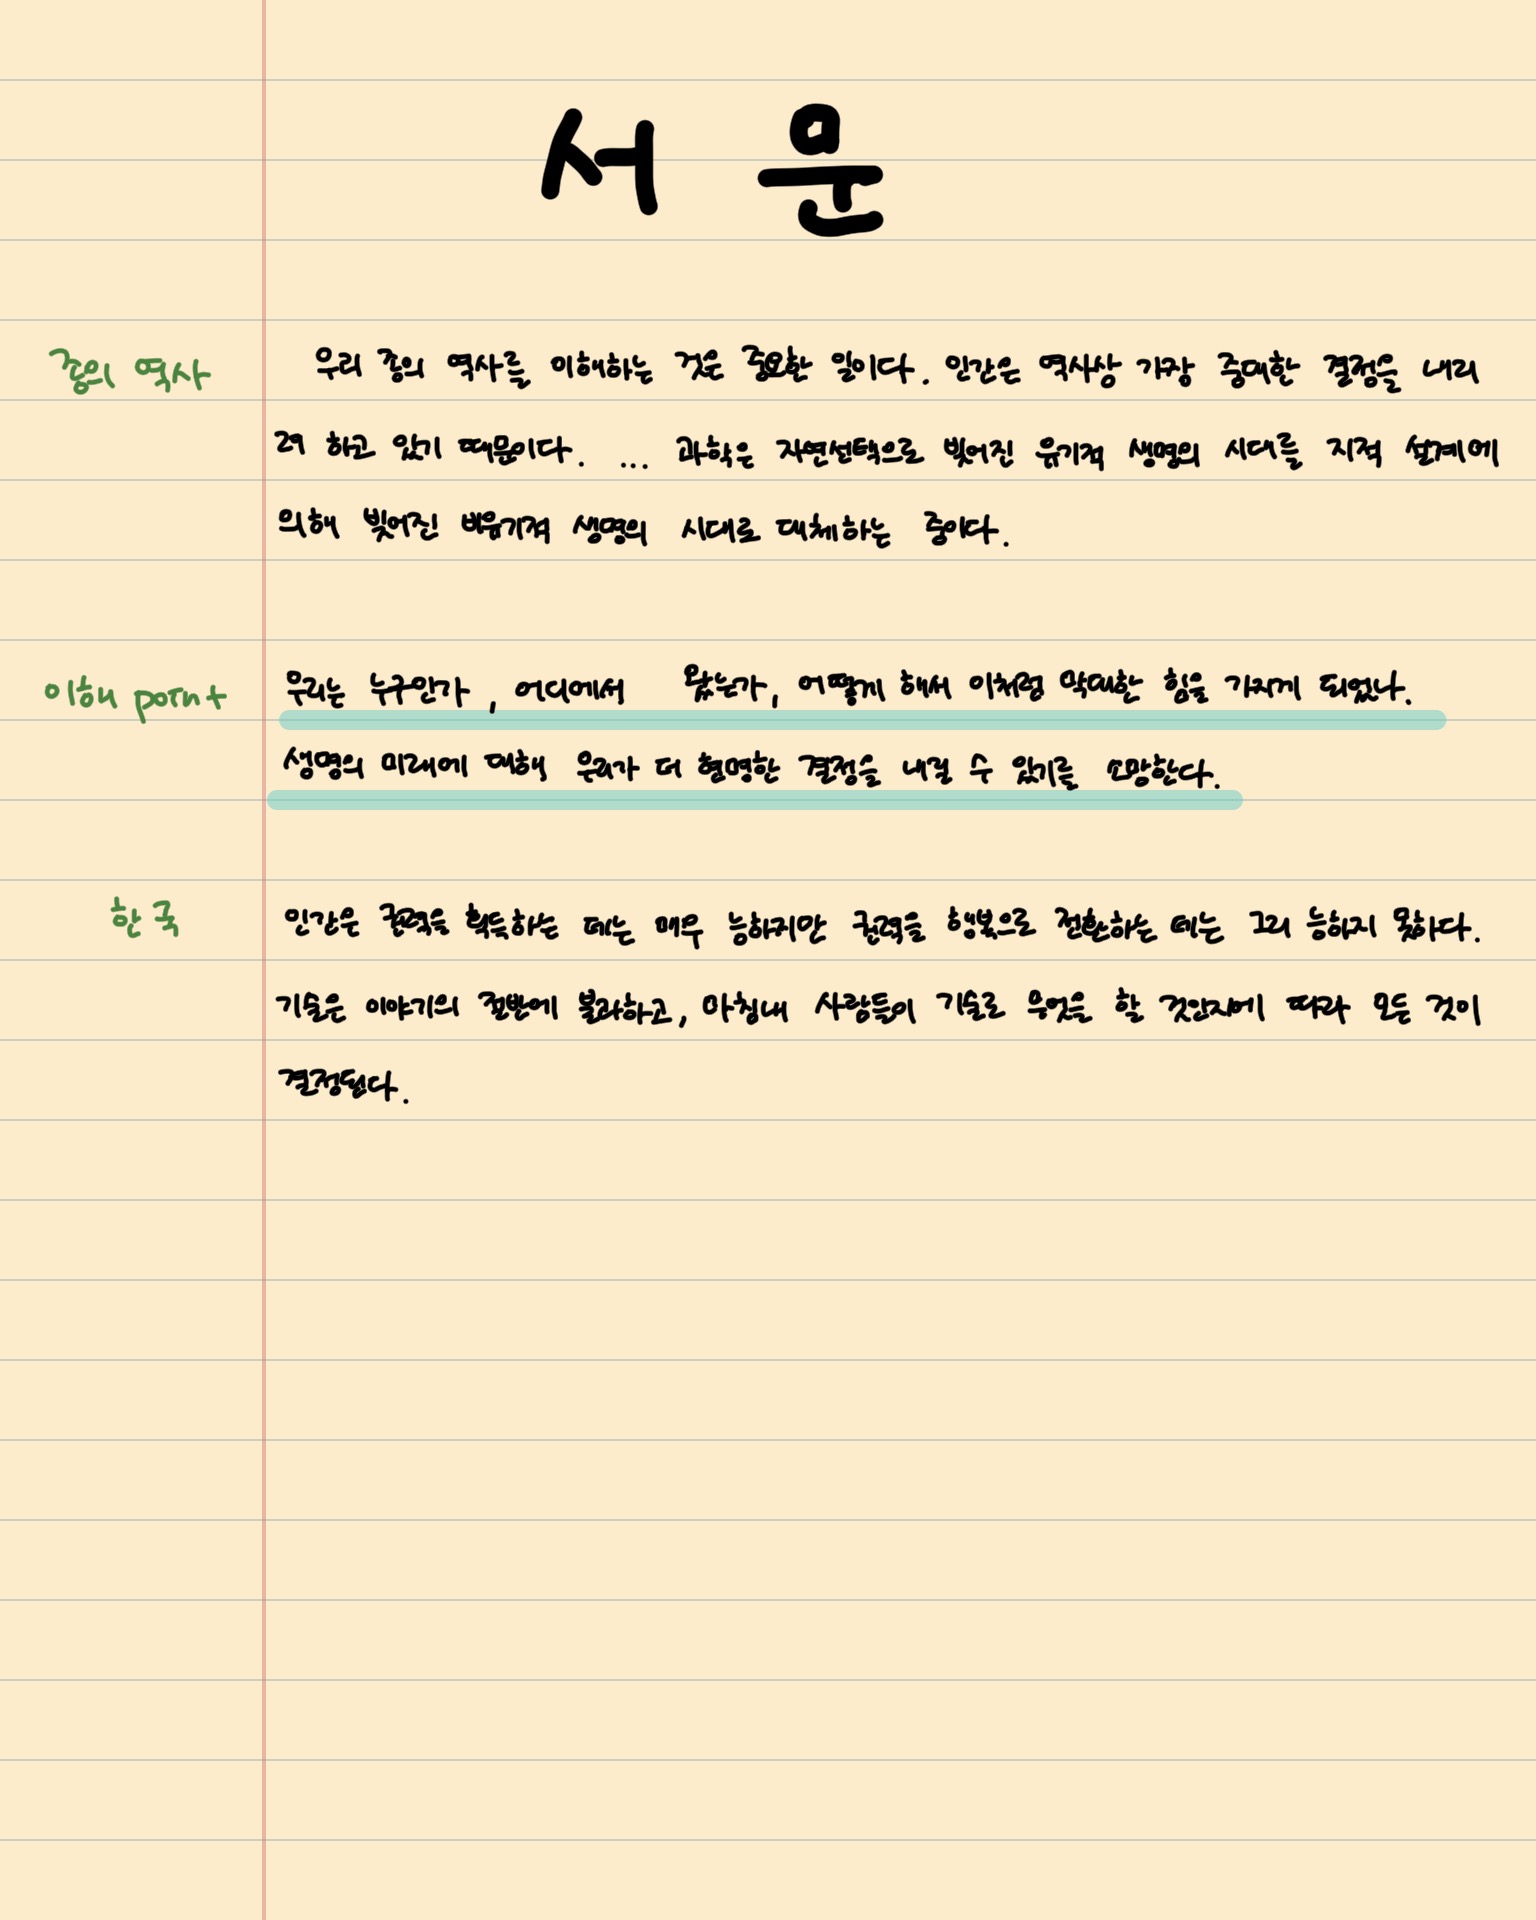 서 운
종의 역사
우리 종의 역사를 이해하는 것은 중요한 일이다. 인간은 역사상 가장 중대한 결정을 내리
려 하고 있기 때문이다. ... 과학은 자연선택으로 빚어진 유기적 생명의 시대를 지적 설계에
의해 빚어진 비유기적 생명의 시대로 대체하는 중이다.
이해 point
우리는 누구인가, 어디에서 왔는가, 어떻게 해서 이처럼 막대한 힘을 가지게 되었나.
생명의 미래에 대해 우리가 더 현명한 결정을 내릴 수 있기를 소망한다.
한국
인간은 권력을 획득하는 데는 매우 능하지만 권력을 행복으로 전환하는 데는 그리 능하지 못하다.
기술은 이야기의 절반에 불과하고, 마침내 사람들이 기술로 무엇을 할 것인지에 따라 모든 것이
결정된다.